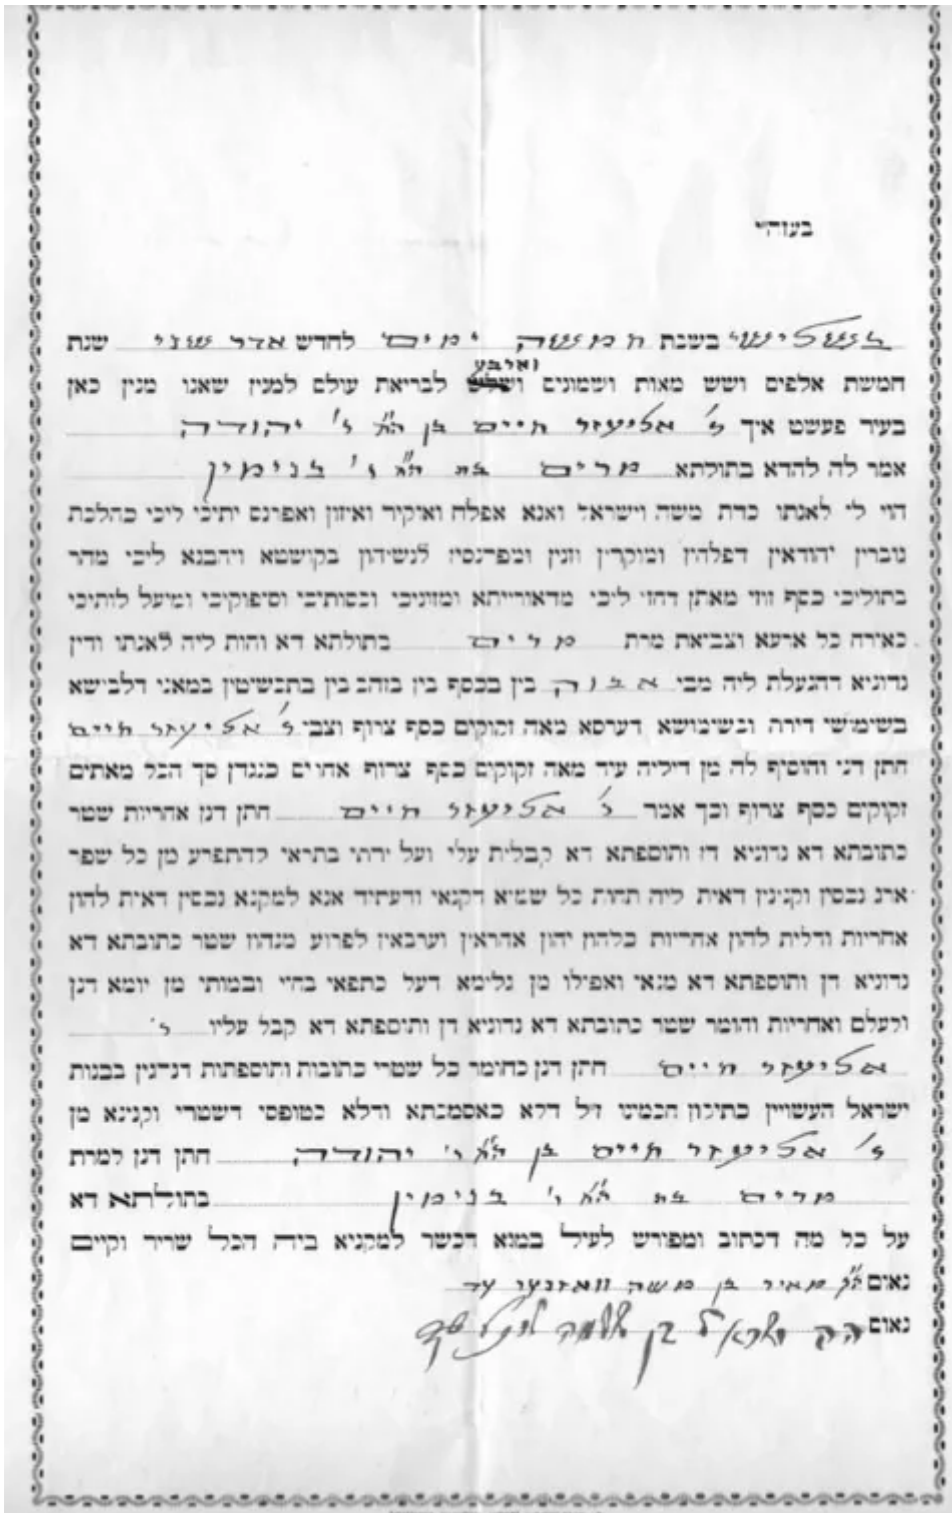 בעזה״י
בשלישי בשבת חמשה ימים לחדש אדר שני שנת
וארבע
חמשת אלפים ושש מאות ושמונים ושלש לבריאת עולם למנין שאנו מנין כאן
בעיר פעשט איך ר' אליעזר חיים בן הח' ר' יהודה
אמר לה להדא בתולתא מרים בת הח' ר' בנימין
הוי לי לאנתו כדת משה וישראל ואנא אפלח ואוקיר ואיזון ואפרנס יתיכי ליכי כהלכת
גוברין יהודאין דפלחין ומוקרין וזנין ומפרנסין לנשיהון בקושטא ויהבנא ליכי מהר
בתוליכי כסף זוזי מאתן דחזי ליכי מדאורייתא ומזוניכי וכסותיכי וסיפוקיכי ומיעל לותיכי
כאורח כל ארעא וצביאת מרת מרים בתולתא דא והות ליה לאנתו ודין
נדוניא דהנעלת ליה מבי אבוה בין בכסף בין בזהב בין בתכשיטין במאני דלבושא
בשימושי דירה ובשימושא דערסא מאה זקוקים כסף צרוף וצבי ר' אליעזר חיים
חתן דנן והוסיף לה מן דיליה עוד מאה זקוקים כסף צרוף אחרים כנגדן סך הכל מאתים
זקוקים כסף צרוף וכך אמר ר' אליעזר חיים חתן דנן אחריות שטר
כתובתא דא נדוניא דן ותוספתא דא קבלית עלי ועל ירתי בתראי להתפרע מן כל שפר
ארג נכסין וקנינין דאית ליה תחות כל שמיא דקנאי ודעתיד אנא למקנא נכסין דאית להון
אחריות ודלית להון אחריות כלהון יהון אחראין וערבאין לפרוע מנהון שטר כתובתא דא
נדוניא דן ותוספתא דא מנאי ואפילו מן גלימא דעל כתפאי בחיי ובמותי מן יומא דנן
ולעלם ואחריות וחומר שטר כתובתא דא נדוניא דן ותוספתא דא קבל עליו ר'
אליעזר חיים חתן דנן כחומר כל שטרי כתובות ותוספתות דנהגין בבנות
ישראל העשויין כתיקון חכמינו ז״ל דלא כאסמכתא ודלא כטופסי דשטרי וקנינא מן
ר' אליעזר חיים בן הח' ר' יהודה חתן דנן למרת
מרים בת הח' ר' בנימין בתולתא דא
על כל מה דכתוב ומפורש לעיל במנא דכשר למקניא ביה הכל שריר וקיים
נאום הק' מאיר בן משה וואזנער עד
נאום הק' ישראל בן שלמה עד